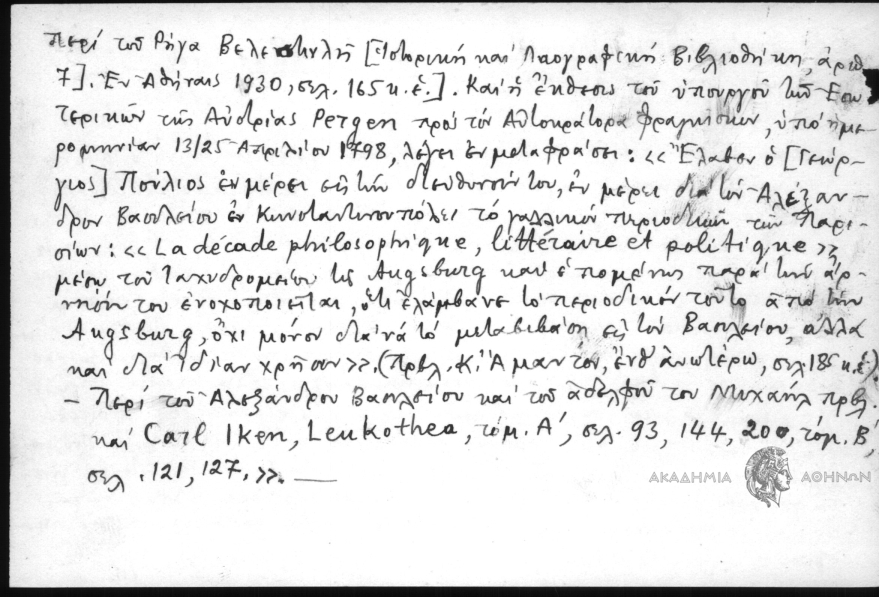 περί τοῦ Ρήγα Βελεστινλῆ [Ἱστορική καί Λαογραφική Βιβλιοθήκη, ἀριθ.
7]. Ἐν Ἀθήναις 1930, σελ. 165 κ.ἑ.]. Καί ἡ ἔκθεσις τοῦ ὑπουργοῦ τῶν Ἐσω-
τερικῶν τῆς Αὐστρίας Pergen πρός τόν Αὐτοκράτορα Φραγκῖσκον, ὑπό ἡμε-
ρομηνίαν 13/25 Ἀπριλίου 1798, λέγει ἐν μεταφράσει: «Ἔλαβεν ὁ [Γεώρ-
γιος] Πούλιος ἐν μέρει εἰς τήν διεύθυνσίν του, ἐν μέρει διά τόν Ἀλέξαν-
δρον Βασιλείου ἐν Κωνσταντινουπόλει τό γαλλικόν περιοδικόν τῶν Παρι-
σίων: «La décade philosophique, littéraire et politique»,
μέσω τοῦ Ταχυδρομείου τῆς Augsburg καί ἑπομένως παρά τήν ἄρ-
νησίν του ἐνοχοποιεῖται, ὅτι ἐλάμβανε τό περιοδικόν τοῦτο ἀπό τήν
Augsburg, ὄχι μόνον διά νά τό μεταβιβάση εἰς τόν Βασιλείου, ἀλλά
καί διά ἰδίαν χρῆσιν». (Πρβλ. Κ. Ἀμάντου, ἔνθ' ἀνωτέρω, σελ. 185 κ.ἑ.).
– Περί τοῦ Ἀλεξάνδρου Βασιλείου καί τοῦ ἀδελφοῦ του Μιχαήλ πρβλ.
καί Carl Iken, Leukothea, τόμ. Α', σελ. 93, 144, 200, τόμ. Β',
σελ. 121, 127.». —
ΑΚΑΔΗΜΙΑ ΑΘΗΝΩΝ